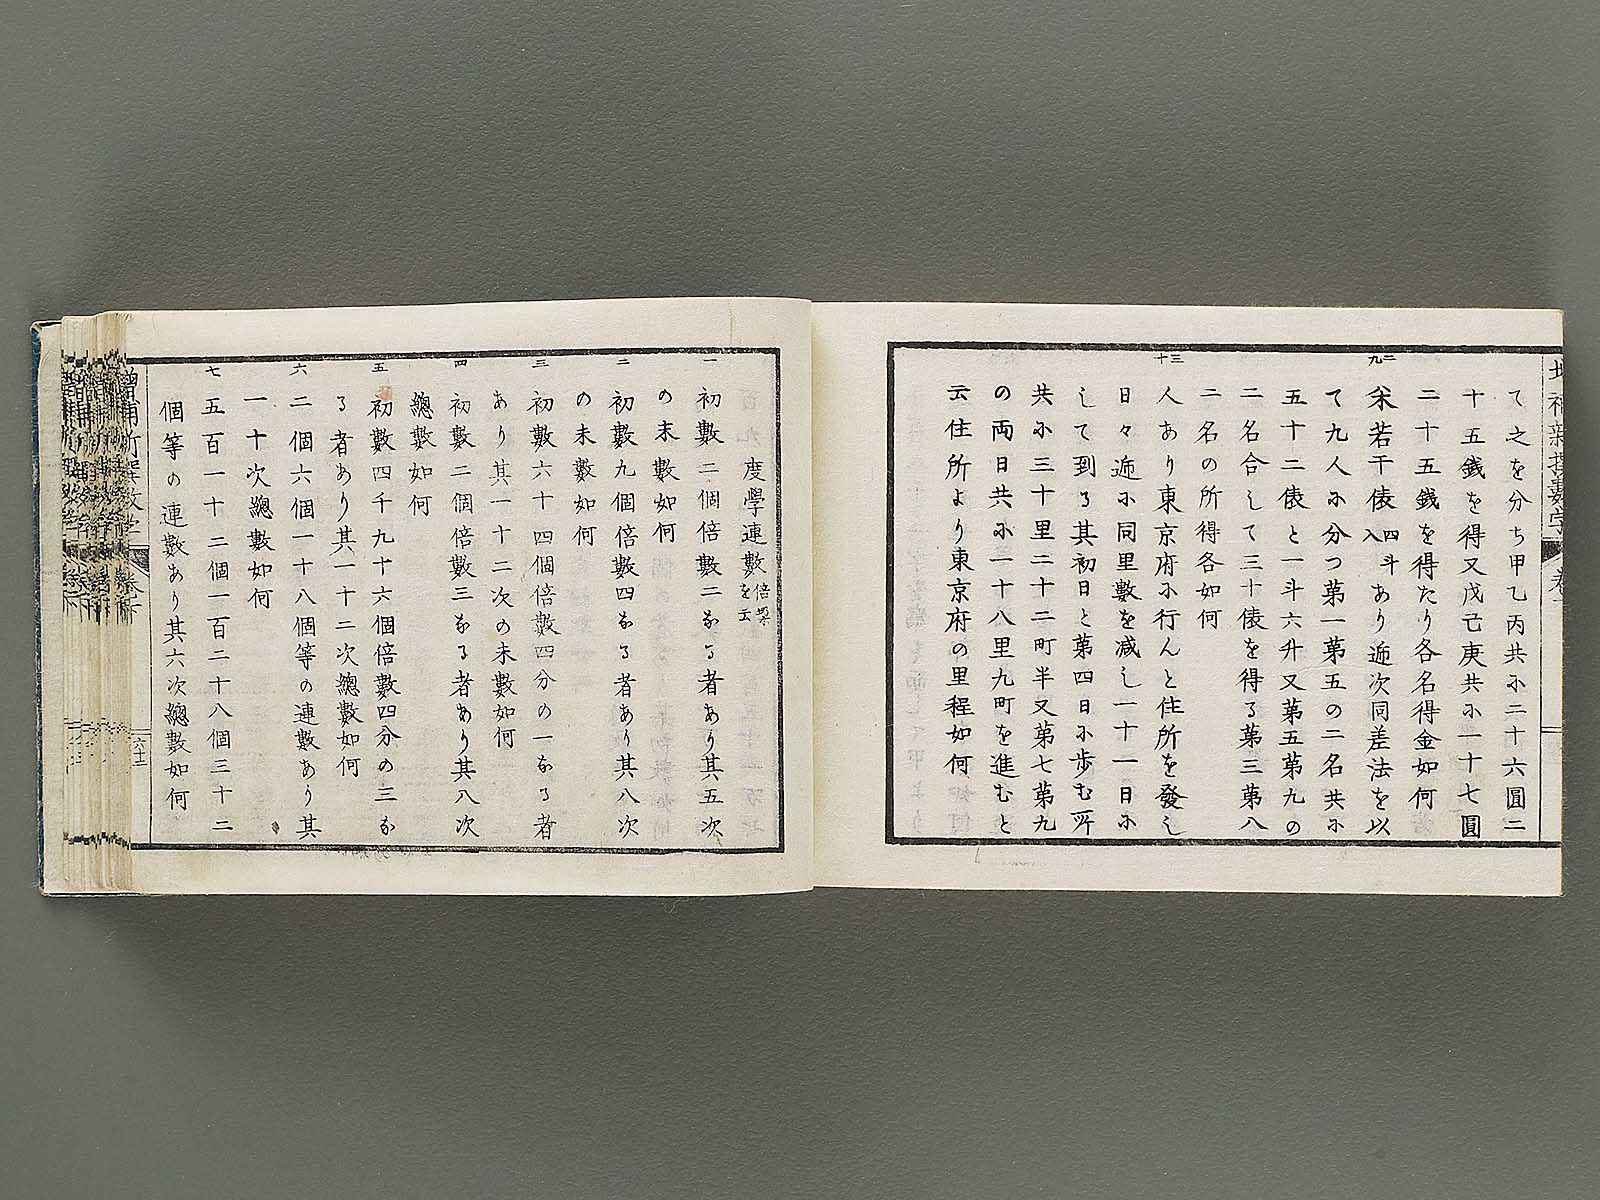 て之を分ち甲乙丙共に二十六圓二
十五錢を得又戊己庚共に一十七圓
二十五錢を得たり各名得金如何
二九
米若干俵四斗入あり逓次同差法を以
て九人に分つ第一第五の二名共に
五十二俵と一斗六升又第五第九の
二名合して三十俵を得る第三第八
二名の所得各如何
三十
人あり東京府に行んと住所を發し
日々逓に同里數を減し一十一日に
して到る其初日と第四日に歩む所
共に三十里二十二町半又第七第九
の両日共に一十八里九町を進むと
云住所より東京府の里程如何
度學連數倍數を云
一
初數二個倍數二なる者あり其五次
の末數如何
二
初數九個倍數四なる者あり其八次
の末數如何
三
初數六十四個倍數四分の一なる者
あり其一十二次の末數如何
四
初數二個倍數三なる者あり其八次
總數如何
五
初數四千九十六個倍數四分の三な
る者あり其一十二次總數如何
六
二個六個一十八個等の連數あり其
一十次總數如何
七
五百一十二個一百二十八個三十二
個等の連數あり其六次總數如何
増補新撰數學
六十三